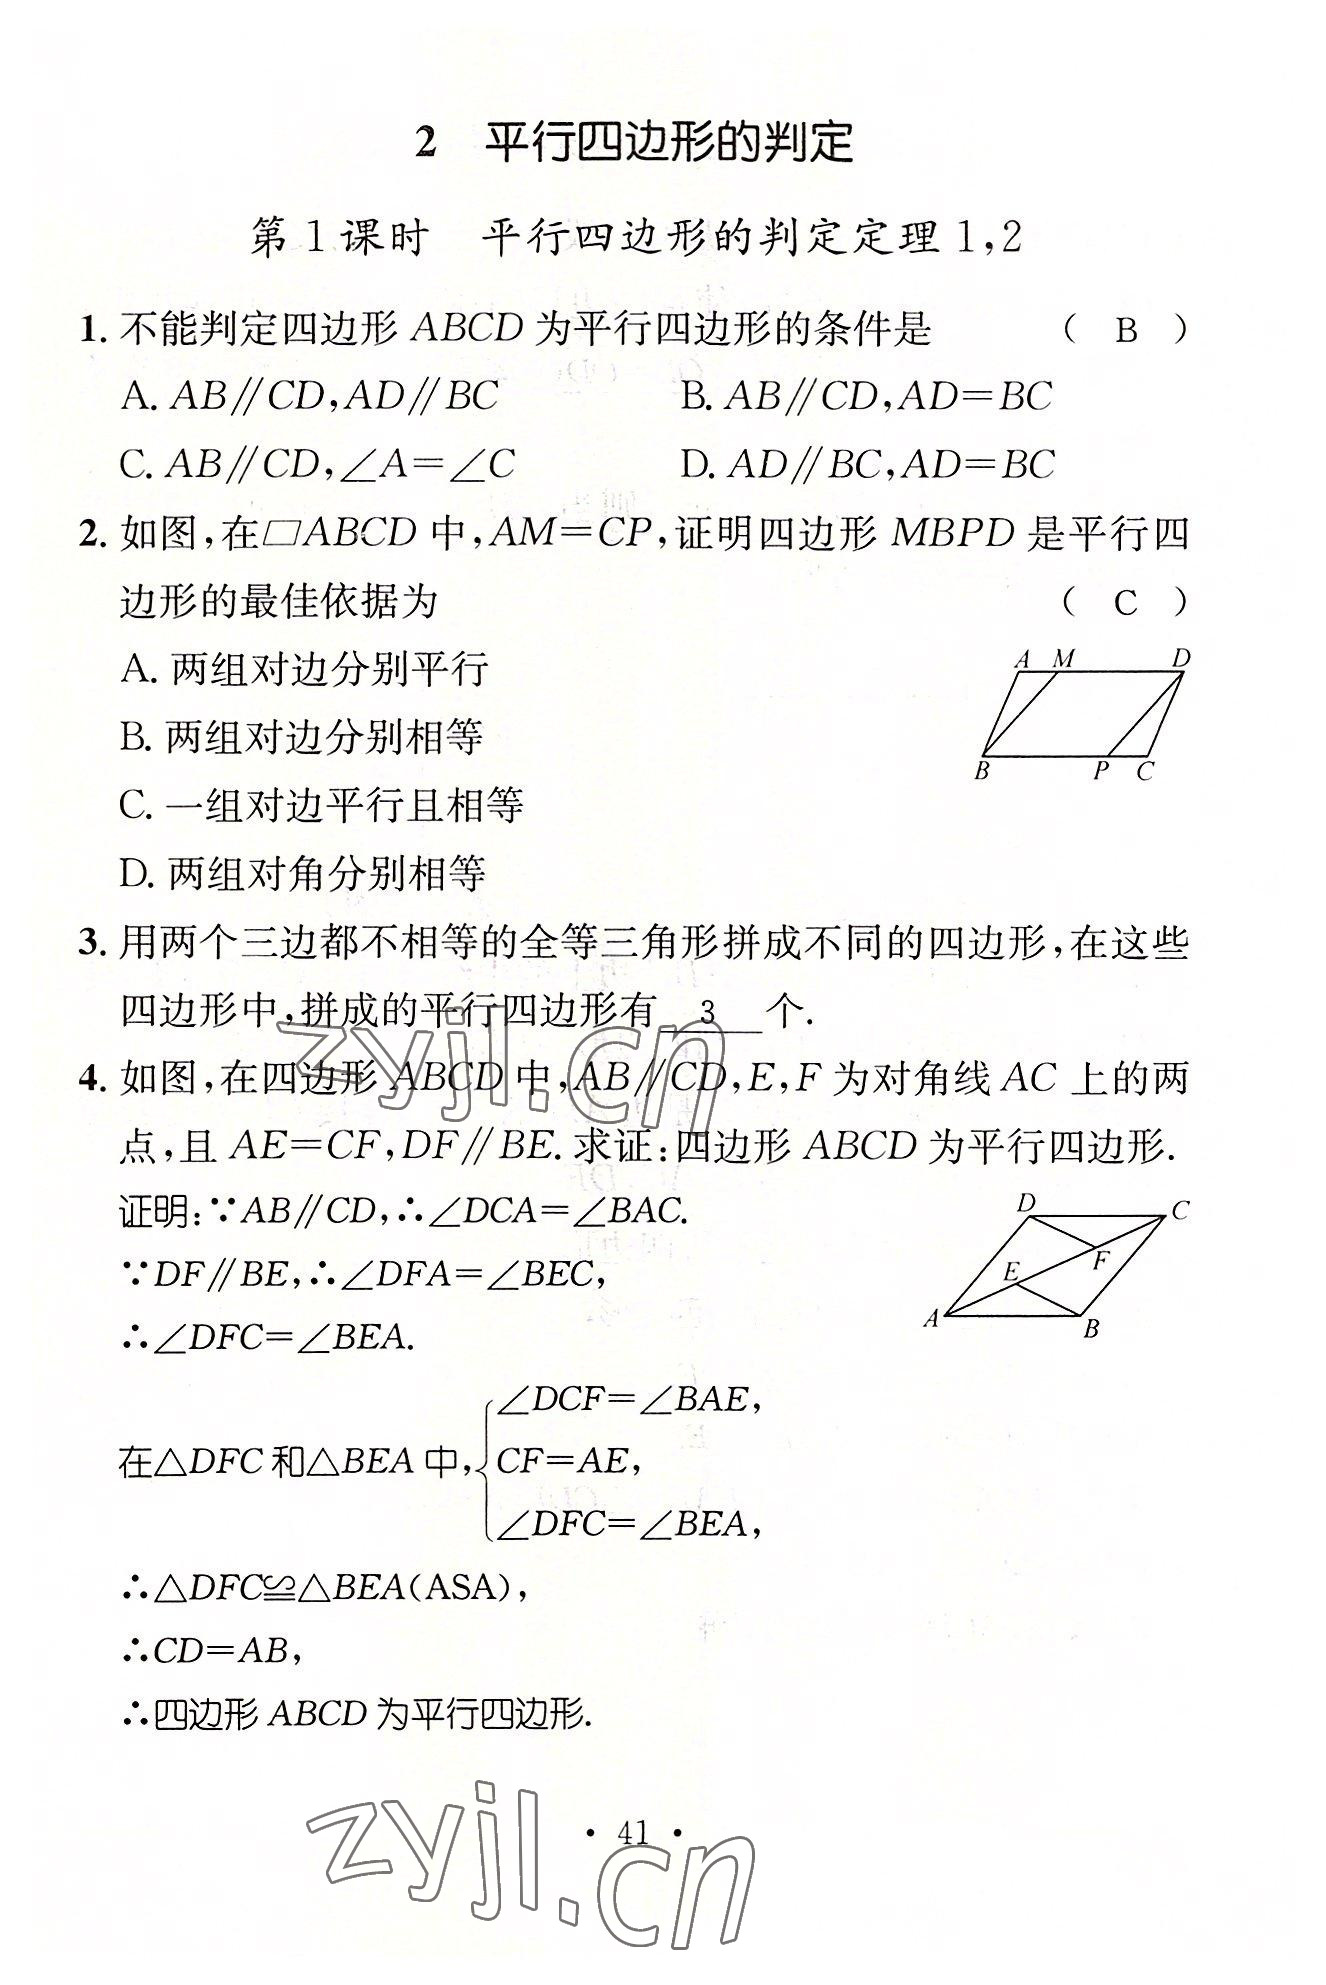 2 平行四边形的判定
第1课时 平行四边形的判定定理1,2
1. 不能判定四边形 ABCD 为平行四边形的条件是 ( B )
A. AB∥CD,AD∥BC B. AB∥CD,AD=BC
C. AB∥CD,∠A=∠C D. AD∥BC,AD=BC
2. 如图,在□ABCD 中,AM=CP,证明四边形 MBPD 是平行四
边形的最佳依据为 ( C )
A. 两组对边分别平行
B. 两组对边分别相等
C. 一组对边平行且相等
D. 两组对角分别相等
A M D
B P C
3. 用两个三边都不相等的全等三角形拼成不同的四边形,在这些
四边形中,拼成的平行四边形有 3 个.
4. 如图,在四边形 ABCD 中,AB∥CD,E,F 为对角线 AC 上的两
点,且 AE=CF,DF∥BE. 求证:四边形 ABCD 为平行四边形.
证明:∵AB∥CD,∴∠DCA=∠BAC.
∵DF∥BE,∴∠DFA=∠BEC,
∴∠DFC=∠BEA.
D C
E F
A B
∠DCF=∠BAE,
在△DFC 和△BEA 中, CF=AE,
∠DFC=∠BEA,
∴△DFC≌△BEA(ASA),
∴CD=AB,
∴四边形 ABCD 为平行四边形.
· 41 ·
zyjl.cn
zyjl.cn